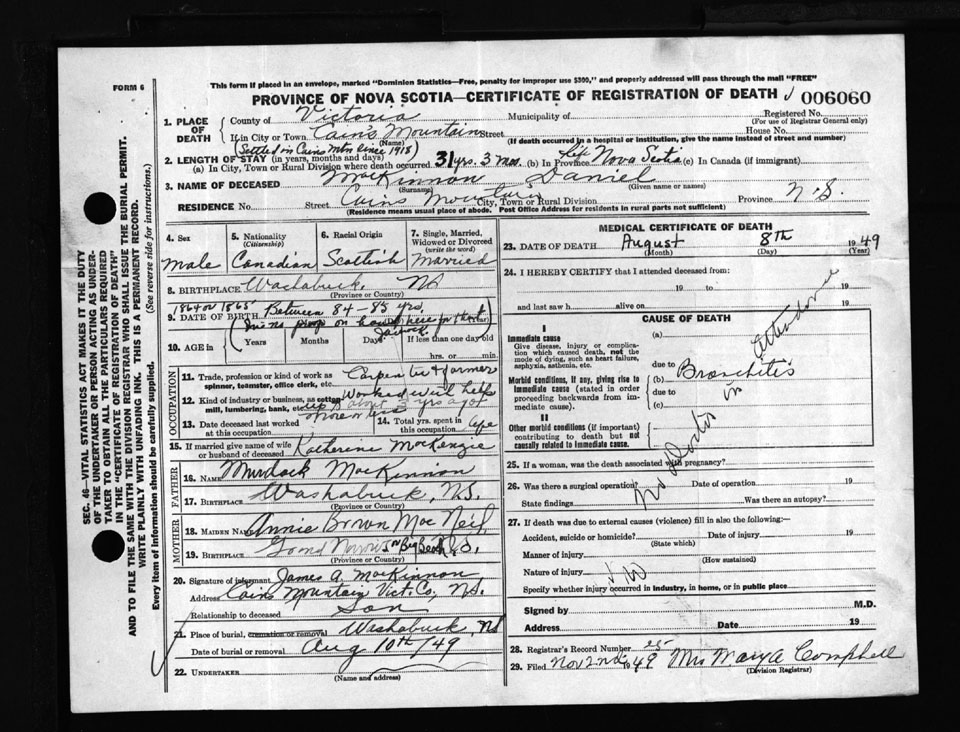 FORM 6
This form if placed in an envelope, marked "Dominion Statistics—Free, penalty for improper use $300," and properly addressed will pass through the mail "FREE"
PROVINCE OF NOVA SCOTIA—CERTIFICATE OF REGISTRATION OF DEATH 006060
SEC. 46—VITAL STATISTICS ACT MAKES IT THE DUTY
OF THE UNDERTAKER OR PERSON ACTING AS UNDER-
TAKER TO OBTAIN ALL THE PARTICULARS REQUIRED
IN THE "CERTIFICATE OF REGISTRATION OF DEATH"
AND TO FILE THE SAME WITH THE DIVISION REGISTRAR WHO SHALL ISSUE THE BURIAL PERMIT.
WRITE PLAINLY WITH UNFADING INK. THIS IS A PERMANENT RECORD.
Every item of Information should be carefully supplied. (See reverse side for instructions.)
1. PLACE OF DEATH
County of Victoria Municipality of Registered No.
(For use of Registrar General only)
If in City or Town Cains Mountain Street House No.
(Name) (If death occurred in a hospital or institution, give the name instead of street and number)
(Settled in Cains Mtn since 1918)
2. LENGTH OF STAY (in years, months and days)
(a) In City, Town or Rural Division where death occurred 31 yrs. 3 mos. (b) In Province Life Nova Scotia (c) In Canada (if immigrant)
3. NAME OF DECEASED MacKinnon Daniel
(Surname) (Given name or names)
RESIDENCE No. Street Cains Mountain City, Town or Rural Division Province N.S.
(Residence means usual place of abode. Post Office Address for residents in rural parts not sufficient)
4. Sex
Male
5. Nationality
(Citizenship)
Canadian
6. Racial Origin
Scottish
7. Single, Married,
Widowed or Divorced
(write the word)
Married
8. BIRTHPLACE Washabuck, NS
(Province or Country)
1864 or 1865 Between 84-85 yrs
9. DATE OF BIRTH
10. AGE in
Years Months Days If less than one day old
hrs. or min.
OCCUPATION
11. Trade, profession or kind of work as
spinner, teamster, office clerk, etc. Carpenter & farmer
12. Kind of industry or business, as cotton
mill, lumbering, bank, etc. Worked
13. Date deceased last worked
at this occupation more or less
14. Total yrs. spent in
this occupation Life
15. If married give name of wife
or husband of deceased Katherine MacKenzie
FATHER
16. Name Murdock MacKinnon
17. BIRTHPLACE Washabuck, N.S.
MOTHER
18. MAIDEN NAME Annie Brown MacNeil
19. BIRTHPLACE
(Province or Country)
20. Signature of informant James A. MacKinnon
Address Cains Mountain Vict. Co., N.S.
Relationship to deceased Son
21. Place of burial, cremation or removal Washabuck, NS
Date of burial or removal Aug 10th/49
22. UNDERTAKER
(Name and address)
MEDICAL CERTIFICATE OF DEATH
23. DATE OF DEATH August 8th 1949
(Month) (Day) (Year)
24. I HEREBY CERTIFY that I attended deceased from:
19 to 19
and last saw h alive on 19
CAUSE OF DEATH
I
Immediate cause
Give disease, injury or complica-
tion which caused death, not the
mode of dying, such as heart failure,
asphyxia, asthenia, etc.
(a)
due to
Morbid conditions, if any, giving rise to
immediate cause (stated in order
proceeding backwards from im-
mediate cause).
(b) Bronchitis
due to
(c)
II
Other morbid conditions (if important)
contributing to death but not
causally related to immediate cause.
No Doctor in attendance
25. If a woman, was the death associated with pregnancy?
26. Was there a surgical operation? Date of operation 19
State findings Was there an autopsy?
27. If death was due to external causes (violence) fill in also the following:—
Accident, suicide or homicide? Date of injury 19
(State which)
Manner of injury
(How sustained)
Nature of injury
Specify whether injury occurred in industry, in home, or in public place
Signed by M.D.
Address Date 19
28. Registrar's Record Number 25
29. Filed Nov 2nd 1949 Mrs Mary A Campbell
(Division Registrar)